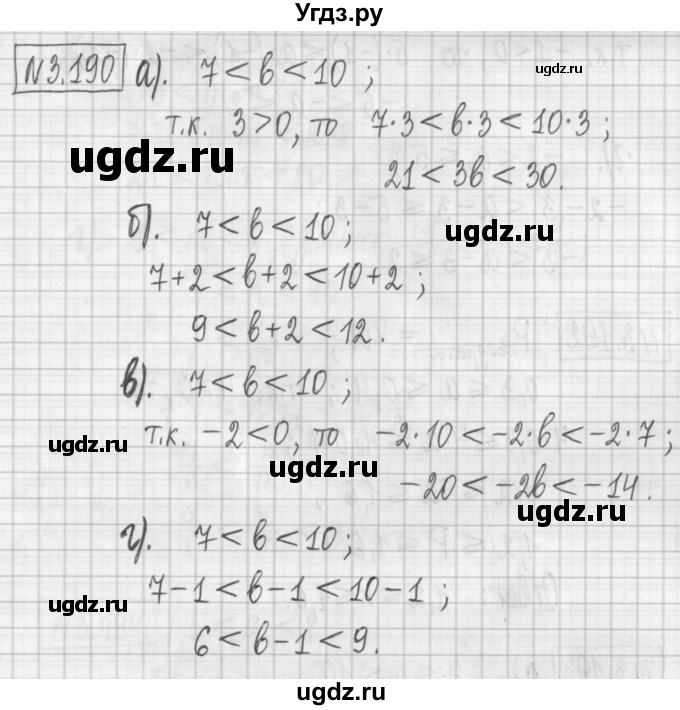 Угдз.ру
№3.190 а). 7 < b < 10 ;
ugdz.ru
т.к. 3 > 0, то 7·3 < b·3 < 10·3 ;
ugdz.ru
21 < 3b < 30.
б). 7 < b < 10 ;
ugdz.ru
7+2 < b+2 < 10+2 ;
9 < b+2 < 12.
в). 7 < b < 10 ;
т.к. -2 < 0, то -2·10 < -2·b < -2·7 ;
ugdz.ru
ugdz.ru
-20 < -2b < -14.
ugdz.ru
г). 7 < b < 10 ;
7-1 < b-1 < 10-1 ;
ugdz.ru
6 < b-1 < 9.
ugdz.ru